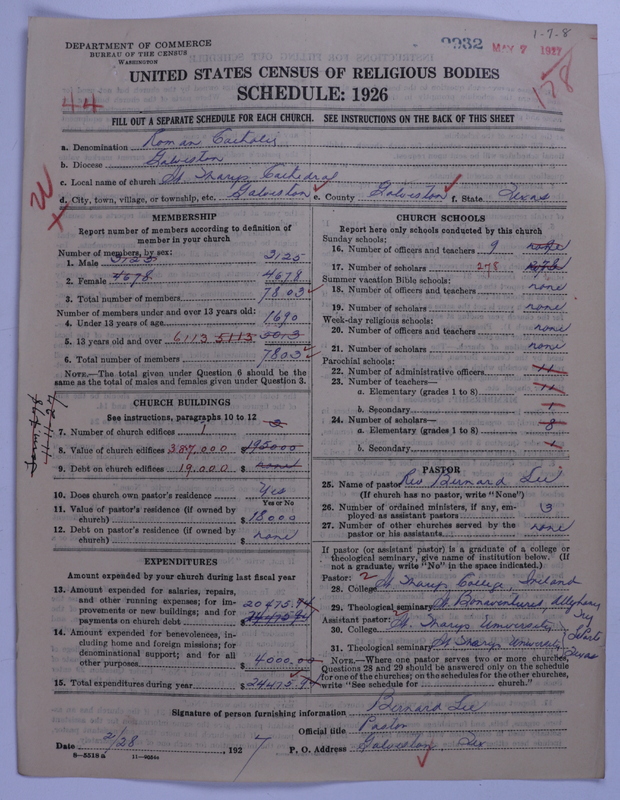 1-7-8
DEPARTMENT OF COMMERCE
BUREAU OF THE CENSUS
WASHINGTON
9932 MAY 7 1927
178
UNITED STATES CENSUS OF RELIGIOUS BODIES
SCHEDULE: 1926
44
FILL OUT A SEPARATE SCHEDULE FOR EACH CHURCH. SEE INSTRUCTIONS ON THE BACK OF THIS SHEET
a. Denomination Roman Catholic
b. Diocese Galveston
c. Local name of church St Marys Cathedral
d. City, town, village, or township, etc. Galveston e. County Galveston f. State Texas
MEMBERSHIP
Report number of members according to definition of
member in your church
Number of members, by sex:
1. Male 3125 3125
2. Female 4678 4678
3. Total number of members 7803
Number of members under and over 13 years old:
4. Under 13 years of age 1690
5. 13 years old and over 6113 5113 5013
6. Total number of members 7803
NOTE.—The total given under Question 6 should be the
same as the total of males and females given under Question 3.
CHURCH BUILDINGS
See instructions, paragraphs 10 to 12
7. Number of church edifices 1
8. Value of church edifices 387,000 $ 195000
9. Debt on church edifices 19,000 $ none
10. Does church own pastor's residence Yes
Yes or No
11. Value of pastor's residence (if owned by
church) $ 18000
12. Debt on pastor's residence (if owned by
church) $ none
EXPENDITURES
Amount expended by your church during last fiscal year
13. Amount expended for salaries, repairs,
and other running expenses; for im-
provements or new buildings; and for
payments on church debt $ 20475.94
14. Amount expended for benevolences, in-
cluding home and foreign missions; for
denominational support; and for all
other purposes $ 4000.00
15. Total expenditures during year $ 24475.94
CHURCH SCHOOLS
Report here only schools conducted by this church
Sunday schools:
16. Number of officers and teachers 9 none
17. Number of scholars 278
Summer vacation Bible schools:
18. Number of officers and teachers none
19. Number of scholars none
Week-day religious schools:
20. Number of officers and teachers none
21. Number of scholars none
Parochial schools:
22. Number of administrative officers 11
23. Number of teachers—
a. Elementary (grades 1 to 8) 11
b. Secondary
24. Number of scholars—
a. Elementary (grades 1 to 8)
b. Secondary
PASTOR
25. Name of pastor Rev Bernard Lee
(If church has no pastor, write "None")
26. Number of ordained ministers, if any, em-
ployed as assistant pastors 3
27. Number of other churches served by the
pastor or his assistants none
If pastor (or assistant pastor) is a graduate of a college or
theological seminary, give name of institution below. (If
not a graduate, write "No" in the space indicated.)
Pastor:
28. College St Marys College, Ireland
29. Theological seminary St Bonaventures, Alleghany
Assistant pastor:
30. College St. Marys University
31. Theological seminary St Marys University Texas
NOTE.—Where one pastor serves two or more churches,
Questions 28 and 29 should be answered only on the schedule
for one of the churches; on the schedules for the other churches,
write "See schedule for church."
Signature of person furnishing information Bernard Lee
Official title Pastor
Date 2/28, 1927 P. O. Address Galveston Tex
8—5518 a